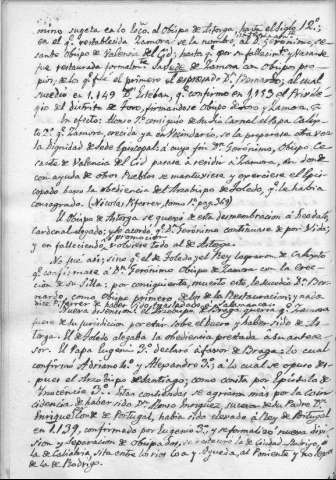 mino sugeta en lo Ecco. al Obispo de Astorga, hasta el siglo 12.
en el q.e restablecida Zamora se la nombró, al D.n Gerónimo, se
canto Obispo de Valencia del Cid, hasta q.e por su fallecim.to y
fue restaurada formalm.te la Sede de Zamora con Obispo pro
pio, de lo q.e fue el primero el expresado D.n Bernardo, al cual
sucedió en 1.149 D.n Esteban, q.e confirmó en 1153 el Privile
gio del distrito de Toro, firmandose Obispo de Toro y Zamora.
En efecto: Alonso 7.º consiguió de su tio Carnal el Papa Calix
to 2.º q.e Zamora, crecida ya en Vecindario, se la preparase otra vez
la dignidad de Sede Episcopal; á cuyo fin D.n Gerónimo, Obispo Ce
sante de Valencia del Cid pasase á residir á Zamora, en donde
con ayuda de otros Pueblos se mantuviera y ejerciera el Epis
copado bajo la obediencia del Arzobispo de Toledo, q.e le habia
consagrado. (Nicolas Ferrer, tomo 1.º pag. 369)
El Obispo de Astorga se quejó de esta desmembracion á Deodato,
Cardenal legado; y le acordó q.e D.n Gerónimo continuase de por Vida;
y en falleciendo, ó promocion, volviese todo al de Astorga.
No fue asi; sino q.e el de Toledo y el Rey lograron de Calixto
q.e confirmase á D.n Gerónimo Obispo de Zamora con la erec
cion de su Silla: por consiguiente, muerto este, le sucedió D.n Ber
nardo, como Obispo primero de los de la Restauracion; y nada
dice Ferrer de haber sido trasladado á Salamanca.
Nueva disension. El Arzobispo de Braga queria q.e Zamora
fuese de su jurisdiccion por estar sobre el Duero y haber sido de As
torga. El de Toledo alegaba la obediencia prestada á su antece
sor. El Papa Eugenio 3.º declaró á favor de Braga: lo cual
confirmó Adriano 4.º y Alexandro 3.º; á lo cual se opuso des
pues el Arzobispo de Santiago; como consta por Epistola de
Inocencia 3.º. Estas contiendas se agriaron más por la coin
cidencia de haber sido D.n Alonso Enriquez, sucesor de su Padre D.n
Enrique, Conde de Portugal, habia sido elevado á Rey de Portugal
en 1.139, confirmado por Eugenio 3.º y se formalizó nueva divi
sion y separacion de Obispados, se restauró la de Ciudad-Rodrigo, ó
la de Caliabria, sita entre los rios Coa y Agueda, al Poniente y
de la de Rodrigo.